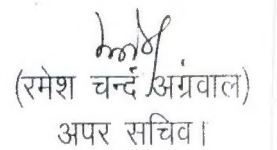 (रमेश चन्द अग्रवाल)
अपर सचिव।